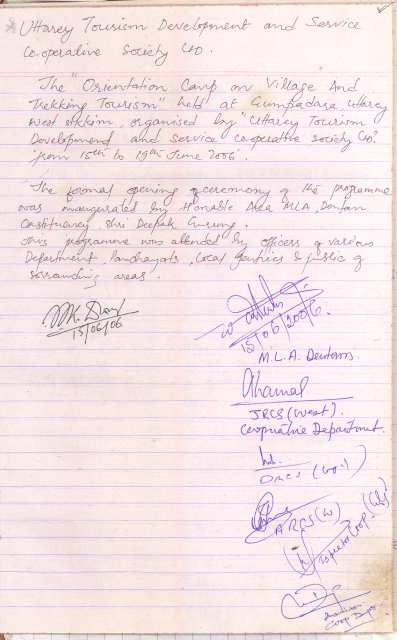 Uttarey Tourism Development and Service
Co-operative Society LTD.
The "Orientation Camp on Village And
Trekking Tourism" held at Gumpadara, Uttarey
West Sikkim, organised by "Uttarey Tourism
Development and Service co-operative society LTD"
from 15th to 19th June 2006.
The formal opening ceremony of the programme
was inaugurated by Honable Area MLA, Dentam
Constituency, Shri Deepak Gurung.
This programme was attended by officers of various
Department, Panchayats, Local gentries & public of
sorrounding areas.
15/06/06
15/06/2006.
M.L.A. Dentam
JRCS (West).
Cooperative Department.
DRCS
ARCS (W)
Inspector Coop
Coop Dept